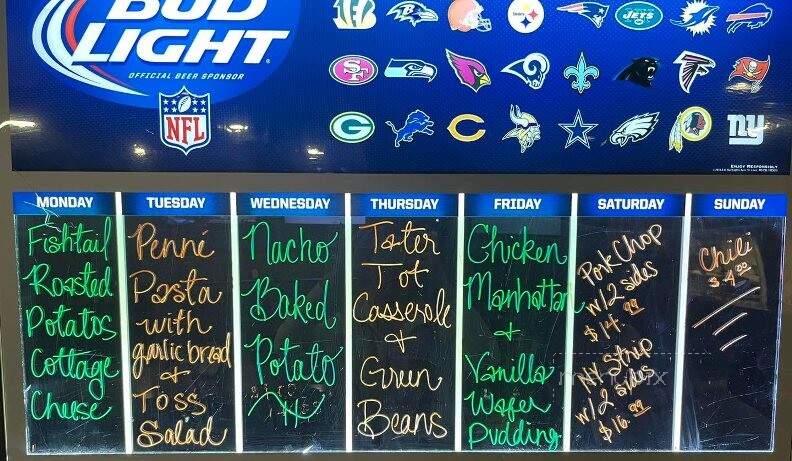 BUD
LIGHT
OFFICIAL BEER SPONSOR
NFL
JETS
SF
G
C
ny
ENJOY RESPONSIBLY
MONDAY
Fishtail
Roasted
Potatos
Cottage
Cheese
TUESDAY
Penné
Pasta
with
garlic bread
+
Toss
Salad
WEDNESDAY
Nacho
Baked
Potato
THURSDAY
Tater
Tot
Casserole
+
Green
Beans
FRIDAY
Chicken
Manhattan
+
Vanilla
Wafer
Pudding
SATURDAY
Pork Chop
w/2 sides
$14.99
NY Strip
w/2 sides
$16.99
SUNDAY
Chili
$4.00